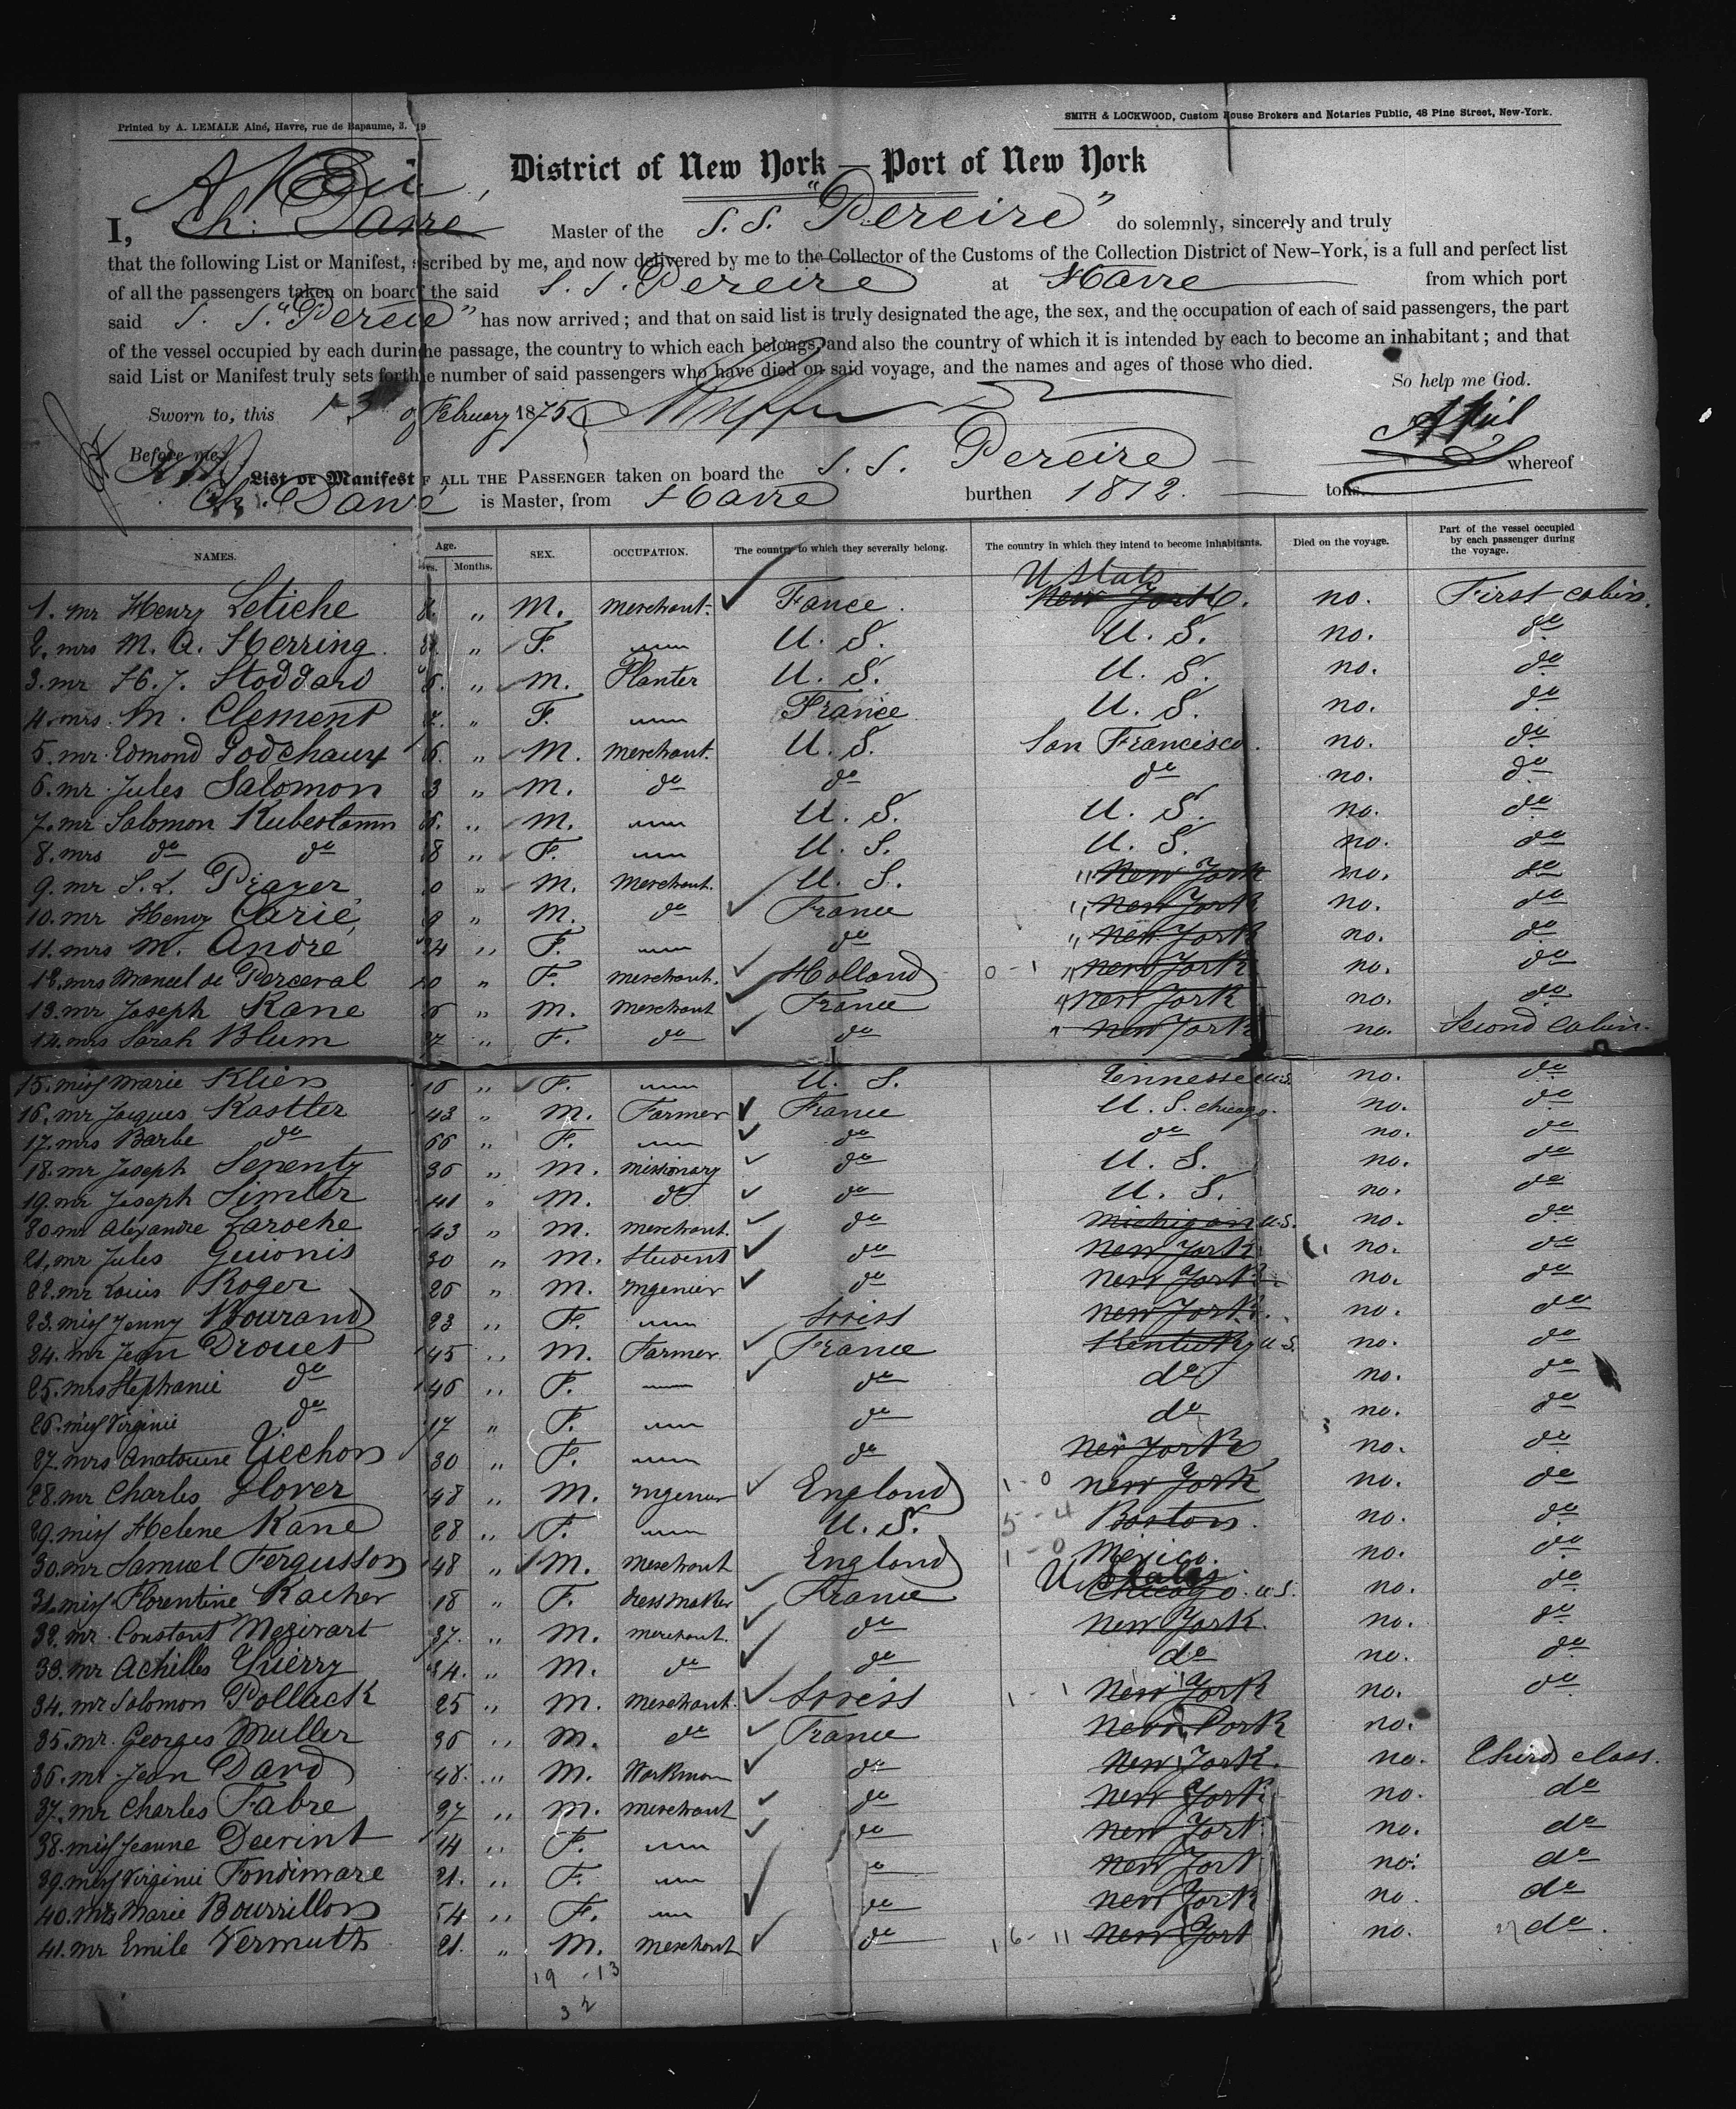 Printed by A. LEMALE Ainé, Havre, rue de Bapaume, 3. 19
SMITH & LOCKWOOD, Custom House Brokers and Notaries Public, 48 Pine Street, New-York.
District of New York — Port of New York
I, Ch: Master of the S. S. "Pereire" do solemnly, sincerely and truly
that the following List or Manifest, scribed by me, and now delivered by me to the Collector of the Customs of the Collection District of New-York, is a full and perfect list
of all the passengers taken on board the said S. S. Pereire at Havre from which port
said S. S. has now arrived; and that on said list is truly designated the age, the sex, and the occupation of each of said passengers, the part
of the vessel occupied by each durin he passage, the country to which each belongs, and also the country of which it is intended by each to become an inhabitant; and that
said List or Manifest truly sets forth e number of said passengers who have died on said voyage, and the names and ages of those who died.
So help me God.
Sworn to, this 13 of February 1875
Before me,
List or Manifest F ALL THE PASSENGER taken on board the S. S. Pereire whereof
Ch. is Master, from Havre burthen 1812. tons.
NAMES. Age. Yrs. Months. SEX. OCCUPATION. The country to which they severally belong. The country in which they intend to become inhabitants. Died on the voyage. Part of the vessel occupied by each passenger during the voyage.
U States
1. mr Henry Letiche " M. merchant. Fance. New York. no. First cabin.
2. mrs M. A. Herring. " F. U. S. U. S. no. do
3. mr H. J. Stoddard " M. Planter U. S. U. S. no. do
4. mrs. M. Clement " F. France U. S. no. do
5. mr. Edmond Godchaux " M. merchant. U. S. San Francisco. no. do
6. mr Jules Salomon 3 " M. do do do no. do
7. mr Salomon " M. U. S. U. S. no. do
8. mrs do do 18 " F. U. S. U. S. no. do
9. mr S. L. Prager 0 " M. merchant. U. S. " New York no. do
10. mr Henry Carié, 9 " M. do France " New York no. do
11. mrs M. André 24 " F. do " New York no. do
12. mrs Manuel de Perceval " F. merchant. Holland 0 - 1 " New York no. do
13. mr Joseph Kane " M. merchant France New York no. do
14. mrs Sarah Blum " F. do do " New York no. Second cabin.
15. miss Marie Klien 16 " F. U. S. Tennessee U.S. no. do
16. mr Jacques Kastler 43 " M. Farmer France U. S. chicago. no. do
17. mrs Barbe do " F. do do no. do
18. mr Joseph " M. missionary do U. S. no. do
19. mr Joseph Simler 41 " M. do do U. S. no. do
20 mr Alexandre Laroche 43 " M. merchant. do Michigan U.S. no. do
21. mr Jules Guionis 30 " M. Student do New York no. do
22. mr Louis Roger 26 " M. Ingenier do New York no. do
23. miss Jenny Bourand 23 " F. Swiss New York. no. do
24. mr Jean Drouet 45 " M. Farmer. France Kentucky U.S. no. do
25. mrs Stephanie do 46 " F. do do no. do
26. miss Virginie do 17 " F. do do no. do
27. mrs 30 " F. do New York no. do
28. mr Charles Glover 48 " M. England 1 - 0 New York no. do
29. miss Helene Kane 28 " F. U. S. 5 - 4 Boston. no. do
30. mr Samuel Fergusson 48 " M. merchant England 1 - 0 Mexico. no. do
U States
31. miss Florentine Kacher 18 " F. dress maker France Chicago. U.S. no. do
32. mr. Constant 37. " M. merchant. do New York. no. do
33. mr Achilles Thierry 34. " M. do do do no. do
34. mr Salomon Pollack 25 " M. merchant. Swiss 1 - 1 New York no. do
35. mr. Georges Muller 36 " M. do France New York no.
36. mr Jean David 48. " M. Workman do New York. no. Third class.
37. mr Charles Fabre 37 " M. merchant do New York no. do
38. miss Jeanne 14 " F. do New York no. do
39. miss Virginie Fondimare 21. " F. do New York no. do
40. mrs Marie Bourrillon 54 " F. do New York no. do
41. mr Emile Vermuth 21. " M. merchant do 16 - 11 New York no. do.
19 - 13
32